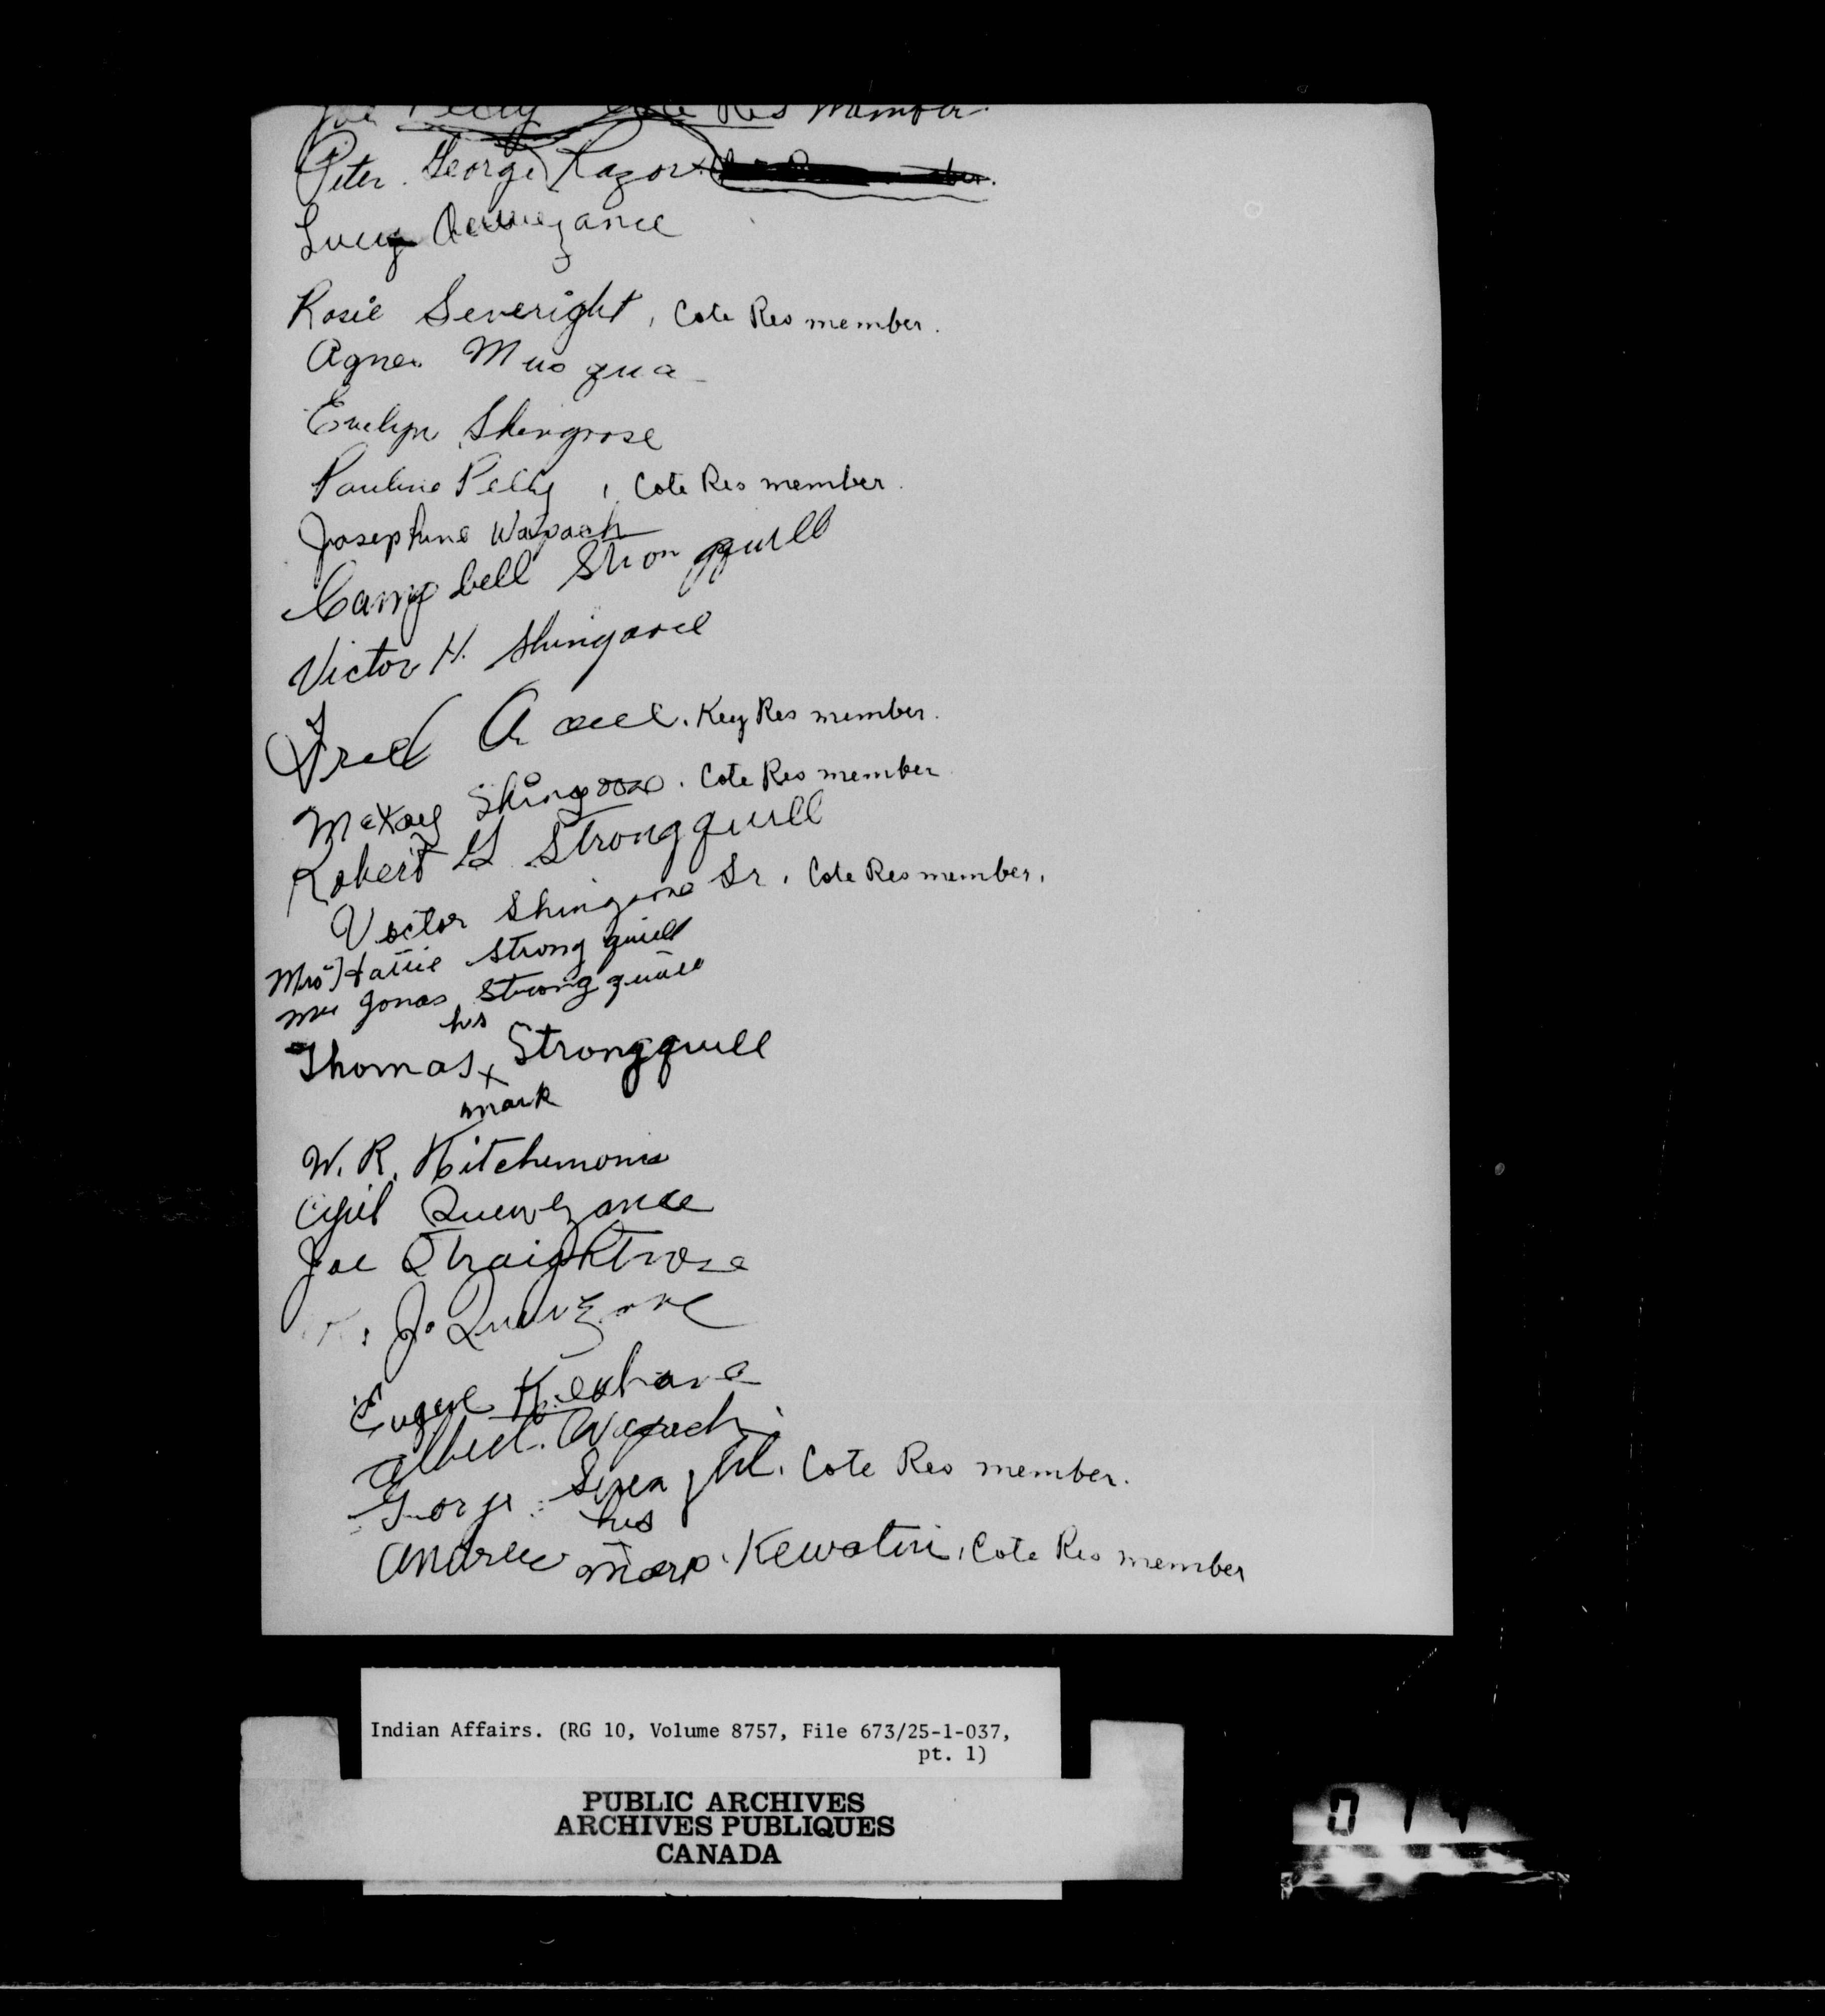 Joe Pelly Cote Res Member.
Peter. George Razor.
Lucy Quewezance
Rosie Severight, Cote Res member.
Agnes Musqua
Evelyn Shingoose
Pauline Pelly, Cote Res member.
Josephine Wapach
Campbell Strongquill
Victor H. Shingoose
Fred Key Res member.
McKay Shingoose. Cote Res member
Robert G Strongquill
Victor Shingoose Sr, Cote Res member,
Mrs Hattie Strong quill
Mr Jonas Strong quill
his
Thomas x Strongquill
mark
W. R. Kitchemonia
Cyril Quewezance
Joe Straightnose
J. Quewezance
Eugene Keshane
Albert. Wapach
George Severight. Cote Res member.
his
Andrew mark Kewatin, Cote Res member
Indian Affairs. (RG 10, Volume 8757, File 673/25-1-037,
pt. 1)
PUBLIC ARCHIVES
ARCHIVES PUBLIQUES
CANADA